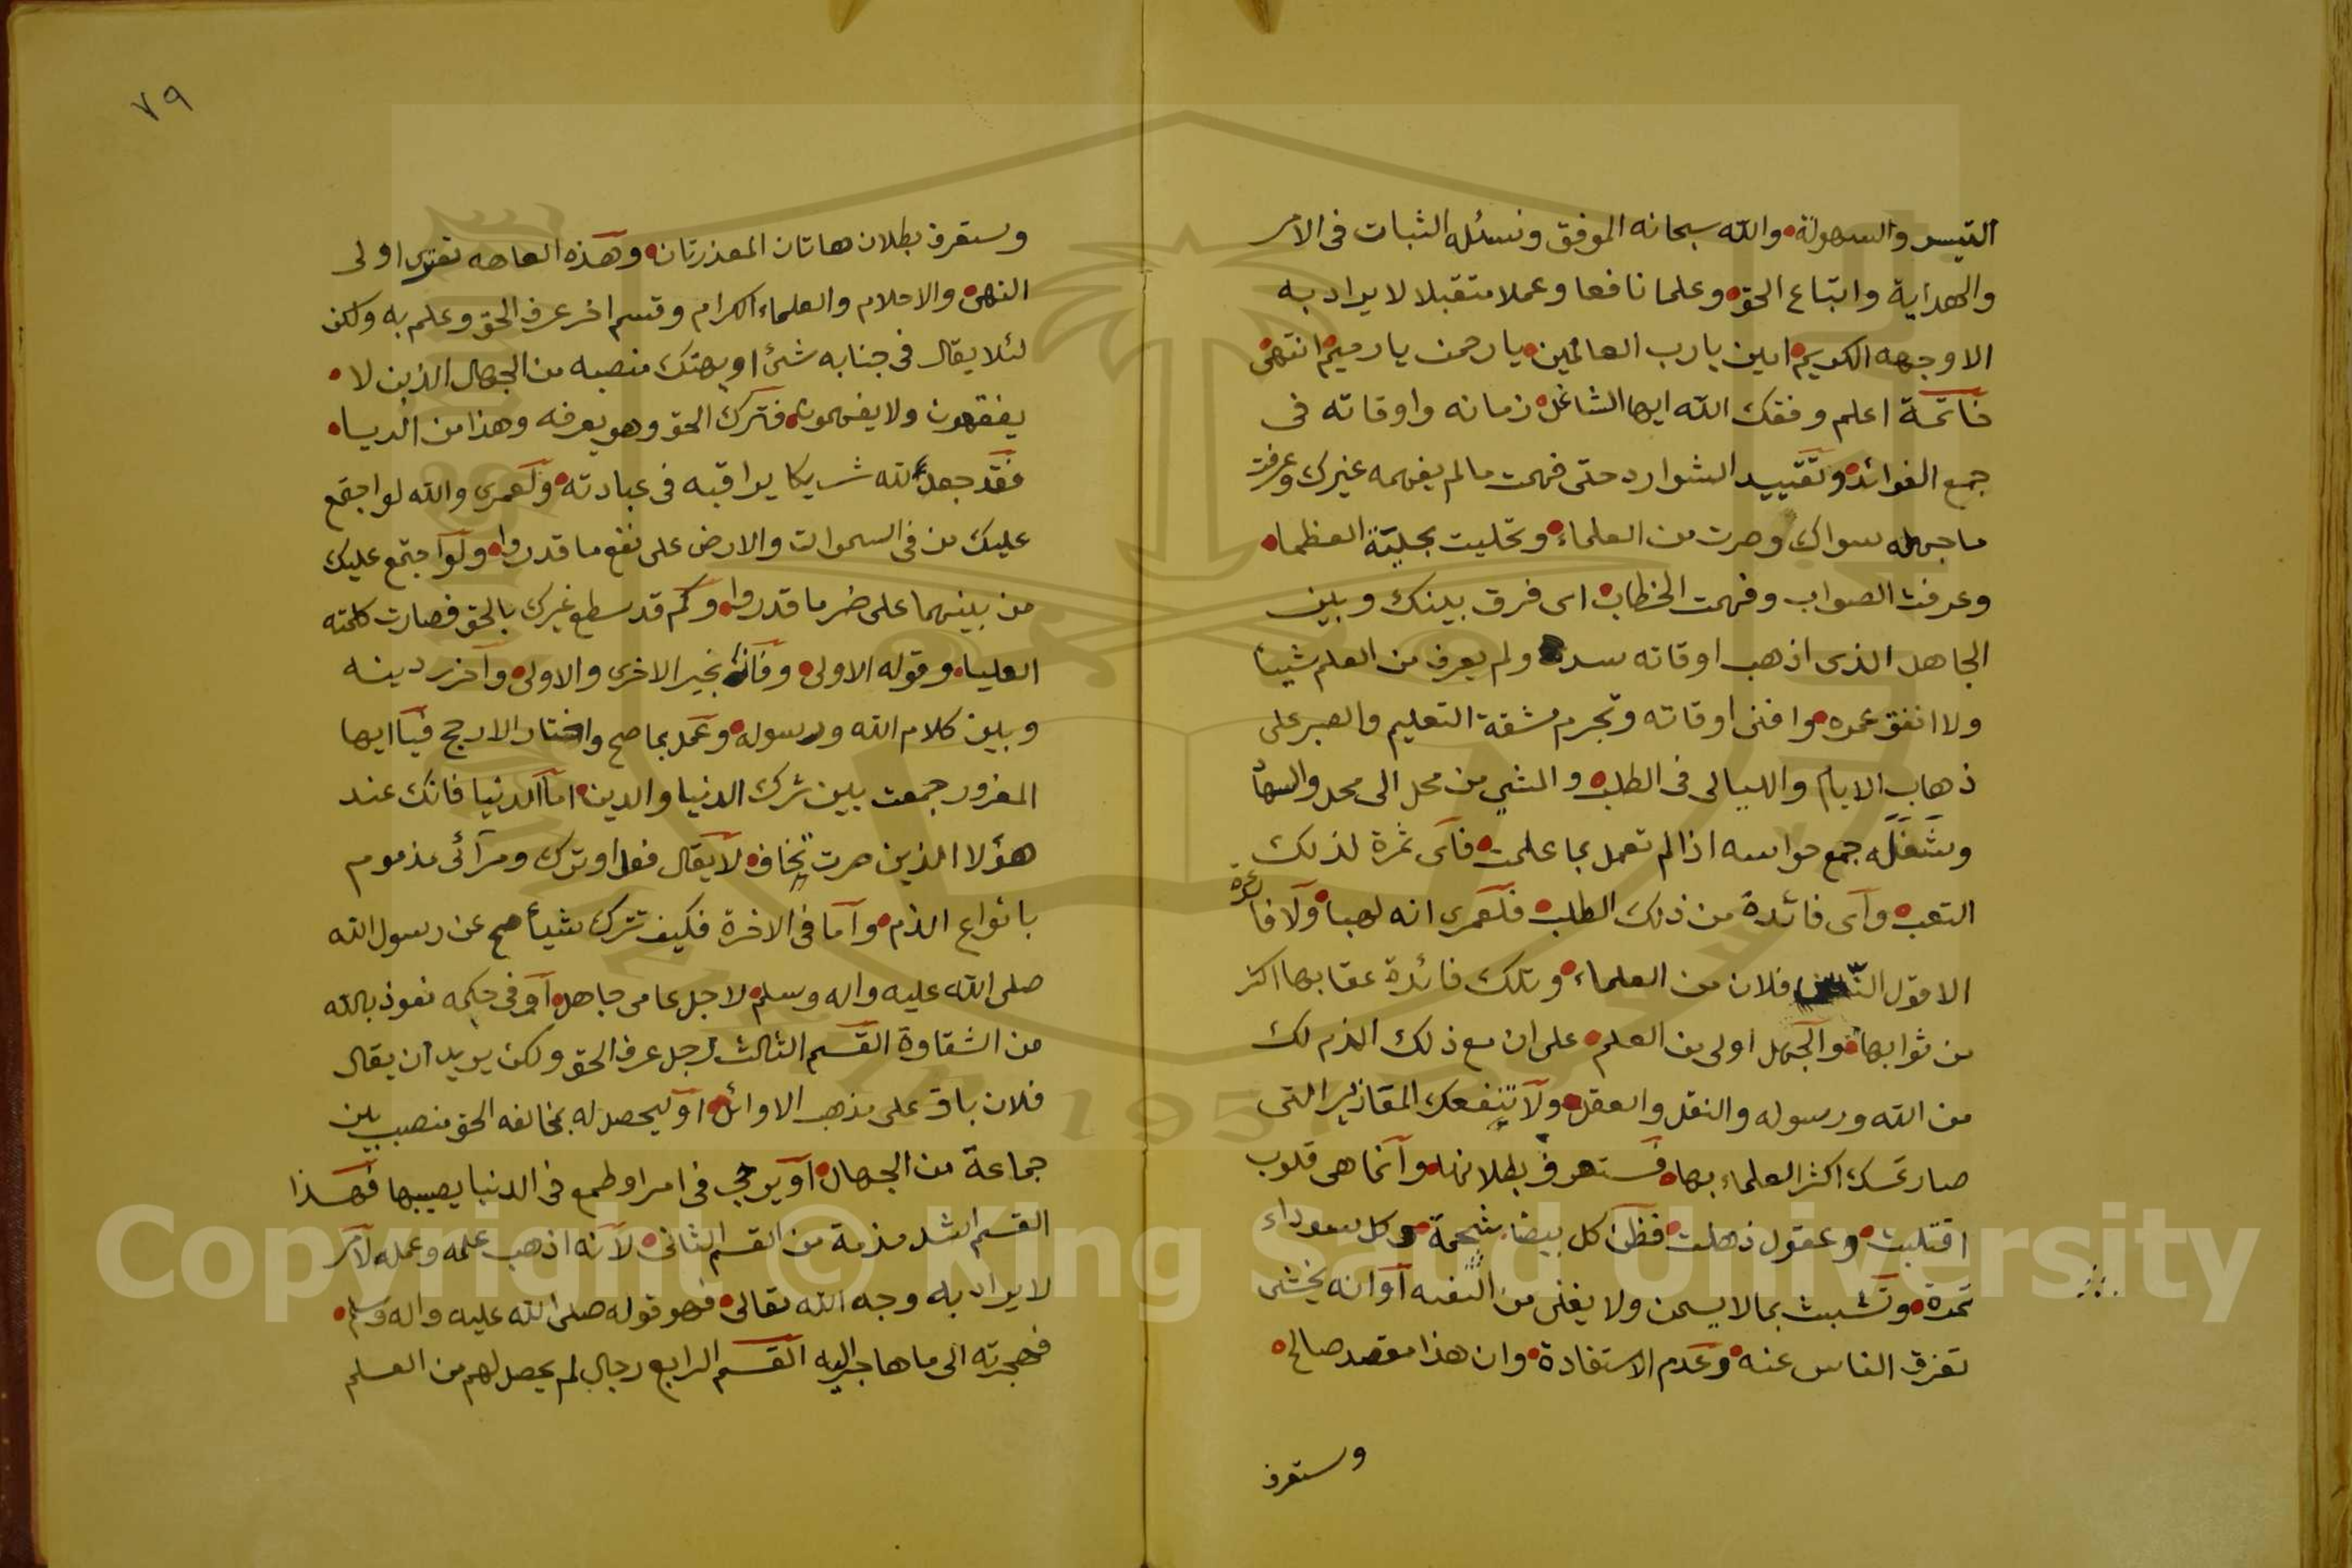 التيسير والسهولة والله سبحانه الموفق ونسئله الثبات فى الامر
والهداية واتباع الحق وعلما نافعا وعملا متقبلا لا يراد به
الا وجهه الكريم امين يارب العالمين يا رحمن يا رحيم انتهى
خاتمة اعلم وفقك الله ايها الشاغل زمانه واوقاته فى
جمع الفوائد وتقييد الشوارد حتى فهمت مالم يفهمه غيرك وعرفت
ما جهله سواك وصرت من العلماء وتحليت بحلية العظماء
وعرفت الصواب وفهمت الخطاب اى فرق بينك وبين
الجاهل الذى اذهب اوقاته سدى ولم يعرف من العلم شيئا
ولا انفق عمره وافنى اوقاته وتجرم مشقة التعليم والصبر على
ذهاب الايام والليالى فى الطلب والمشي من محل الى محل
وشغله جمع حواسه اذا لم تعمل بما علمت فاى ثمرة لذلك
التعب واى فائدة من ذلك الطلب فلعمرى انه لهبا ولا فائدة
الا قول فلان من العلماء وتلك فائدة عقابها اكثر
من ثوابها والجهل اولى من العلم على ان مع ذلك الذم لك
من الله ورسوله والنقل والعقل ولا تنفعك المعاذير التى
صار تمسك اكثر العلماء بها فستعرف بطلانها وانما هى قلوب
اقتلبت وعقول ذهلت فظن كل بيضا شحمة وكل سوداء
تمرة وتشبث بما لا يسمن ولا يغنى من او انه يخشى
تفرق الناس عنه وعدم الاستفادة وان هذا مقصد صالح
وستعرف
٧٩
وستعرف بطلان هاتان المعذرتان وهذه العاهه تعترى اولى
النهى والاحلام والعلماء الكرام وقسم اخر عرف الحق وعلم به ولكن
لئلا يقال فى جنابه شئ او يهتك منصبه من الجهال الذين لا
يفقهون ولا يفهمون فترك الحق وهو يعرفه وهذا من الريا
فقد جعل لله شريكا يراقبه فى عبادته ولعمرى والله لو اجتمع
عليك من فى السموات والارض على نفع ما قدروا ولو اجتمع عليك
من بينهما على ضر ما قدروا وكم قد سطع غيرك بالحق فصارت كلمته
العليا وقوله الاولى وفاز بخير الاخرى والاولى واحرز دينه
وبين كلام الله ورسوله وعمل بما صح واختار الارجح فيا ايها
المغرور جمعت بين شرك الدنيا والدين اما الدنيا فانك عند
هؤلا الذين صرت تخاف لا يقال فعل او ترك ومرآئى مذموم
بانواع الذم واما فى الاخرة فكيف تترك شيأ صح عن رسول الله
صلى الله عليه واله وسلم لاجل عامى جاهل او فى حكمه نعوذ بالله
من الشقاوة القسم الثالث رجل عرف الحق ولكن يريد ان يقال
فلان باق على مذهب الاوائل او ليحصل له بمخالفه الحق منصب بين
جماعة من الجهال او يرجي فى امر او طمع فى الدنيا يصيبها فهذا
القسم اشد مذمة من القسم الثانى لانه اذهب علمه وعمله لامر
لا يراد به وجه الله تعالى فهو قوله صلى الله عليه واله وسلم
فهجرته الى ما هاجر اليه القسم الرابع رجال لم يحصل لهم من العلم
Copyright © King Saud University
1957